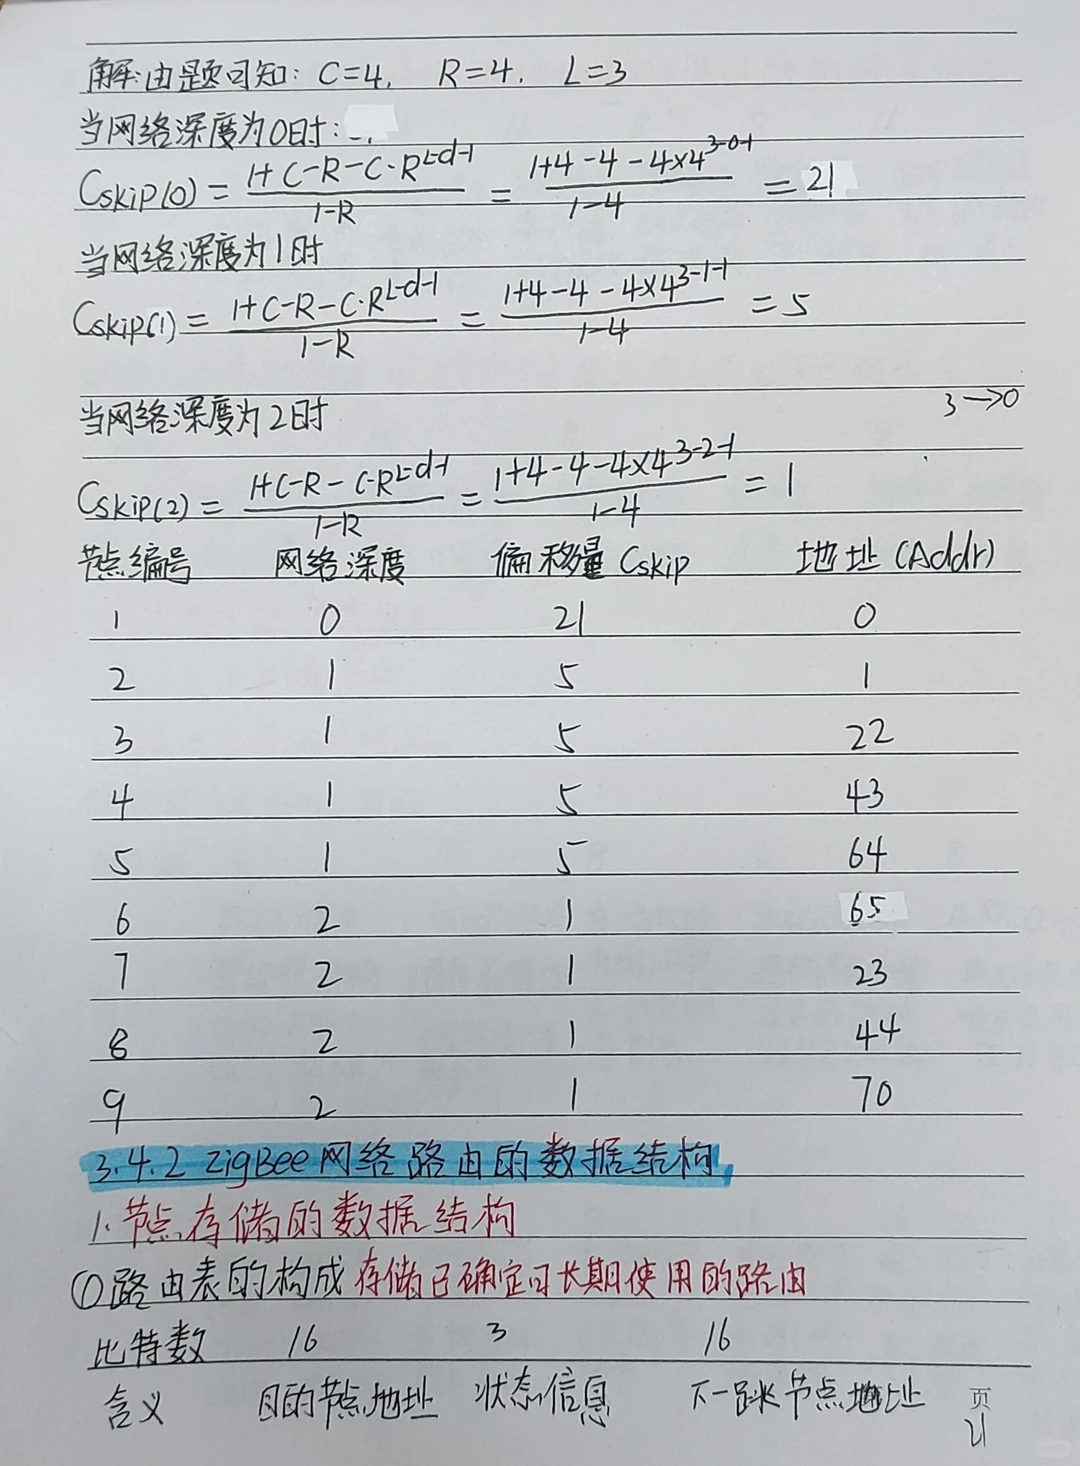 解:由题可知: C=4, R=4, L=3
当网络深度为0时:
Cskip(0) = (1+C-R-C·R^L-d-1)/(1-R) = (1+4-4-4×4^3-0-1)/(1-4) = 21
当网络深度为1时
Cskip(1) = (1+C-R-C·R^L-d-1)/(1-R) = (1+4-4-4×4^3-1-1)/(1-4) = 5
当网络深度为2时 3→0
Cskip(2) = (1+C-R-C·R^L-d-1)/(1-R) = (1+4-4-4×4^3-2-1)/(1-4) = 1
节点编号 网络深度 偏移量Cskip 地址(Addr)
1 0 21 0
2 1 5 1
3 1 5 22
4 1 5 43
5 1 5 64
6 2 1 65
7 2 1 23
8 2 1 44
9 2 1 70
3.4.2 ZigBee网络路由的数据结构
1.节点存储的数据结构
①路由表的构成 存储已确定可长期使用的路由
比特数 16 3 16
含义 目的节点地址 状态信息 下一跳节点地址
页
21